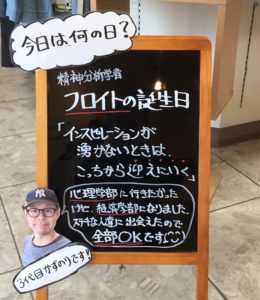 今日は何の日？
精神分析学者
フロイトの誕生日
「インスピレーションが
湧かないときは、
こっちから迎えにいく」
心理学部に行きたかった
けど、経済学部になりました。
ステキな人達に出会えたので
全部OKです
3代目かずのりです!